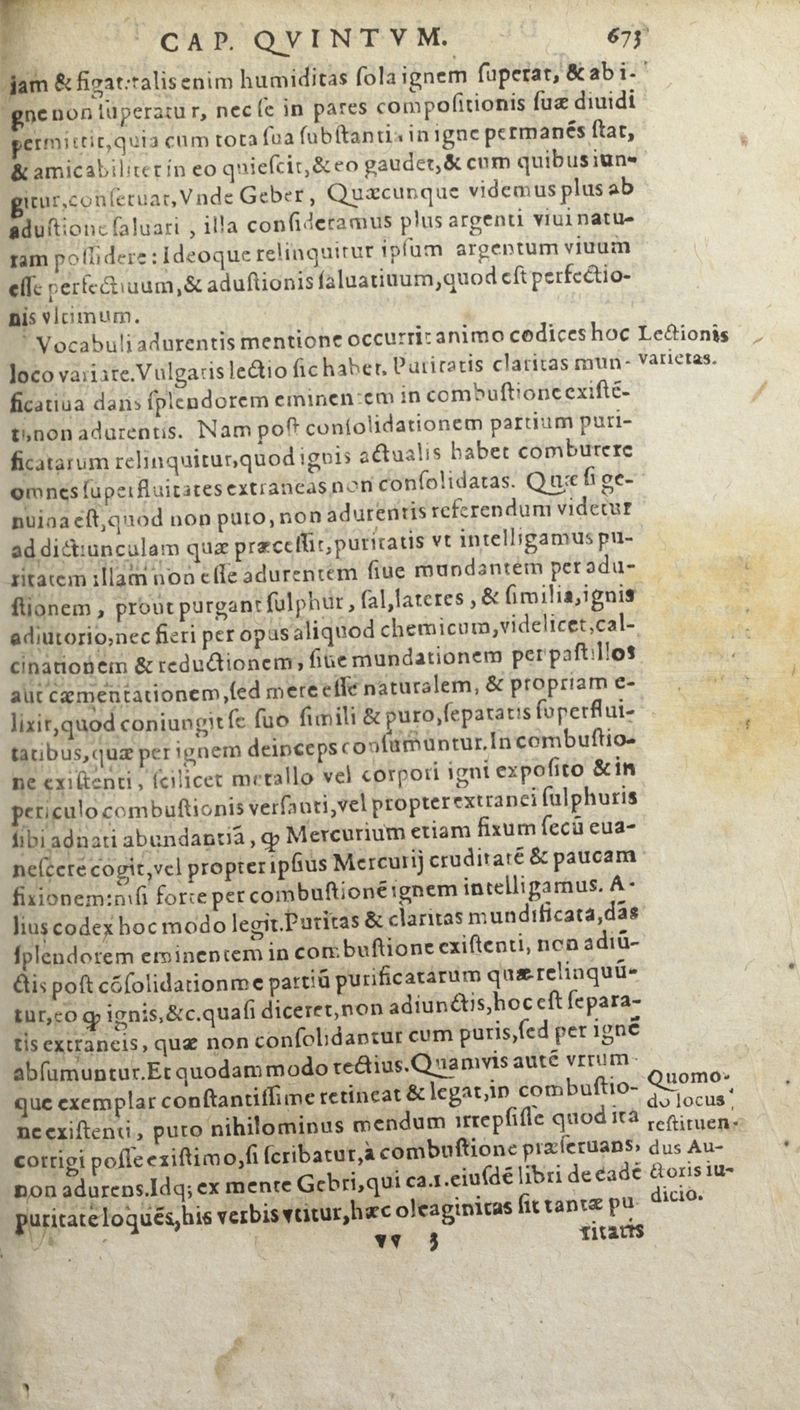 CAP. QVINTVM. 673
jam & figat: talis enim humiditas sola ignem superat, & ab i-
gne non superatur, nec se in partes compositionis suæ diuidi
permittit, quia cum tota sua substantia in igne permanēs stat,
& amicabiliter in eo quiescit, & eo gaudet, & cum quibus iun-
gitur, conseruat, Vnde Geber, Quæcunque videmus plus ab
adustione saluari, illa consideramus plus argenti viui natu-
ram possidere: Ideoque relinquitur ipsum argentum viuum
esse perfectiuum, & adustionis saluatiuum, quod est perfectio-
nis vltimum.
Vocabuli adurentis mentione occurrit animo codices hoc
Lectionis
loco variare. Vulgaris lectio sic habet. Puritatis claritas mun-
varietas.
ficatiua dans splendorem eminentem in combustione existē-
ti, non adurentis. Nam post consolidationem partium puri-
ficatarum relinquitur, quod ignis actualis habet comburere
omnes superfluitates extraneas non consolidatas. Quæ si ge-
nuina est, quod non puto, non adurentis referendum videtur
ad dictiunculam quæ præcessit, puritatis vt intelligamus pu-
ritatem illam non esse adurentem siue mundantem per adu-
stionem, prout purgant sulphur, sal, lateres, & similia, ignis
adiutorio, nec fieri per opus aliquod chemicum, videlicet, cal-
cinationem & reductionem, siue mundationem per pastillos
aut cæmentationem, sed mere esse naturalem, & propriam e-
lixir, quod coniungit se suo simili & puro, separatis superflui-
tatibus, quæ per ignem deinceps consumuntur. In combustio-
ne existenti, scilicet metallo vel corpori igni exposito & in
periculo combustionis versanti, vel propter extranei sulphuris
sibi adnati abundantiā, ꝙ Mercurium etiam fixum secū eua-
nescere cogit, vel propter ipsius Mercurij cruditatē & paucam
fixionem: nisi forte per combustionē ignem intelligamus. A-
lius codex hoc modo legit. Puritas & claritas mundificata, dās
splendorem eminentem in combustione existenti, non adiū-
ctis post cōsolidationme partiū purificatarum quæ relinquū-
tur, eo ꝙ ignis, &c. quasi diceret, non adiunctis, hoc est separa-
tis extraneis, quæ non consolidantur cum puris, sed per ignē
absumuntur. Et quodammodo rectius. Quamvis autē vtrum-
que exemplar constantissime retineat & legat, in combustio-
Quomo-
ne existenti, puto nihilominus mendum irrepsisse quod ita
do locus
corrigi posse existimo, si scribatur, à combustione præseruans,
restituen-
non adurens. Idq; ex mente Gebri, qui ca.1. eiusdē libri de eadē
dus Au-
ctoris iu-
puritatē loquēs, his verbis vtitur, hæc oleaginitas sit tantæ pu
dicio.
vv 3 ritatis